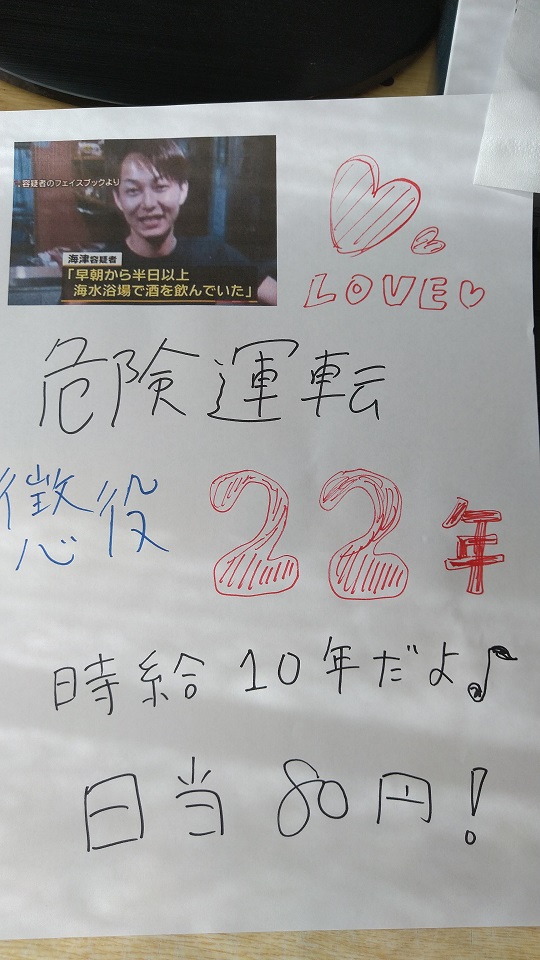 容疑者のフェイスブックより
海津容疑者
「早朝から半日以上
海水浴場で酒を飲んでいた」
LOVE♡
危険運転
懲役 22年
時給10年だよ♪
日当80円!